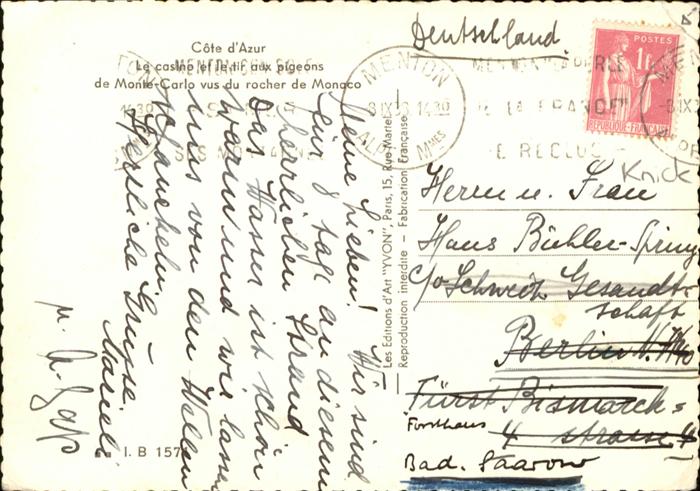 Côte d'Azur
Le casino et le tir aux pigeons
de Monte-Carlo vus du rocher de Monaco
Deutschland
POSTES
1F
REPUBLIQUE FRANÇAISE
MENTON
ALPES Mmes
Knick
Meine Lieben! Wir sind
für 8 Tage an diesem
herrlichen Strand
Das Wasser ist schön
warm und wir lassen
uns von den Wellen
schaukeln.
Herzliche Grüsse
Les Editions d'Art "YVON", Paris, 15, Rue Martel
Reproduction interdite — Fabrication Française
Herrn u. Frau
Hans Bühler-
c/o Schweiz Gesandt-
schaft
Berlin
Fürst Bismarck-
strasse 4
Forsthaus
Bad. Saarow
I. B 157